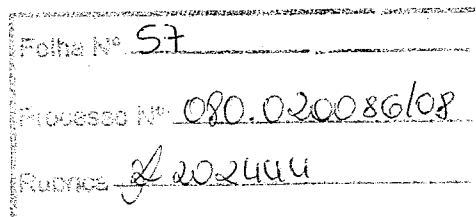 Folha Nº 57
Processo Nº 080.020086/08
Rubrica 202444